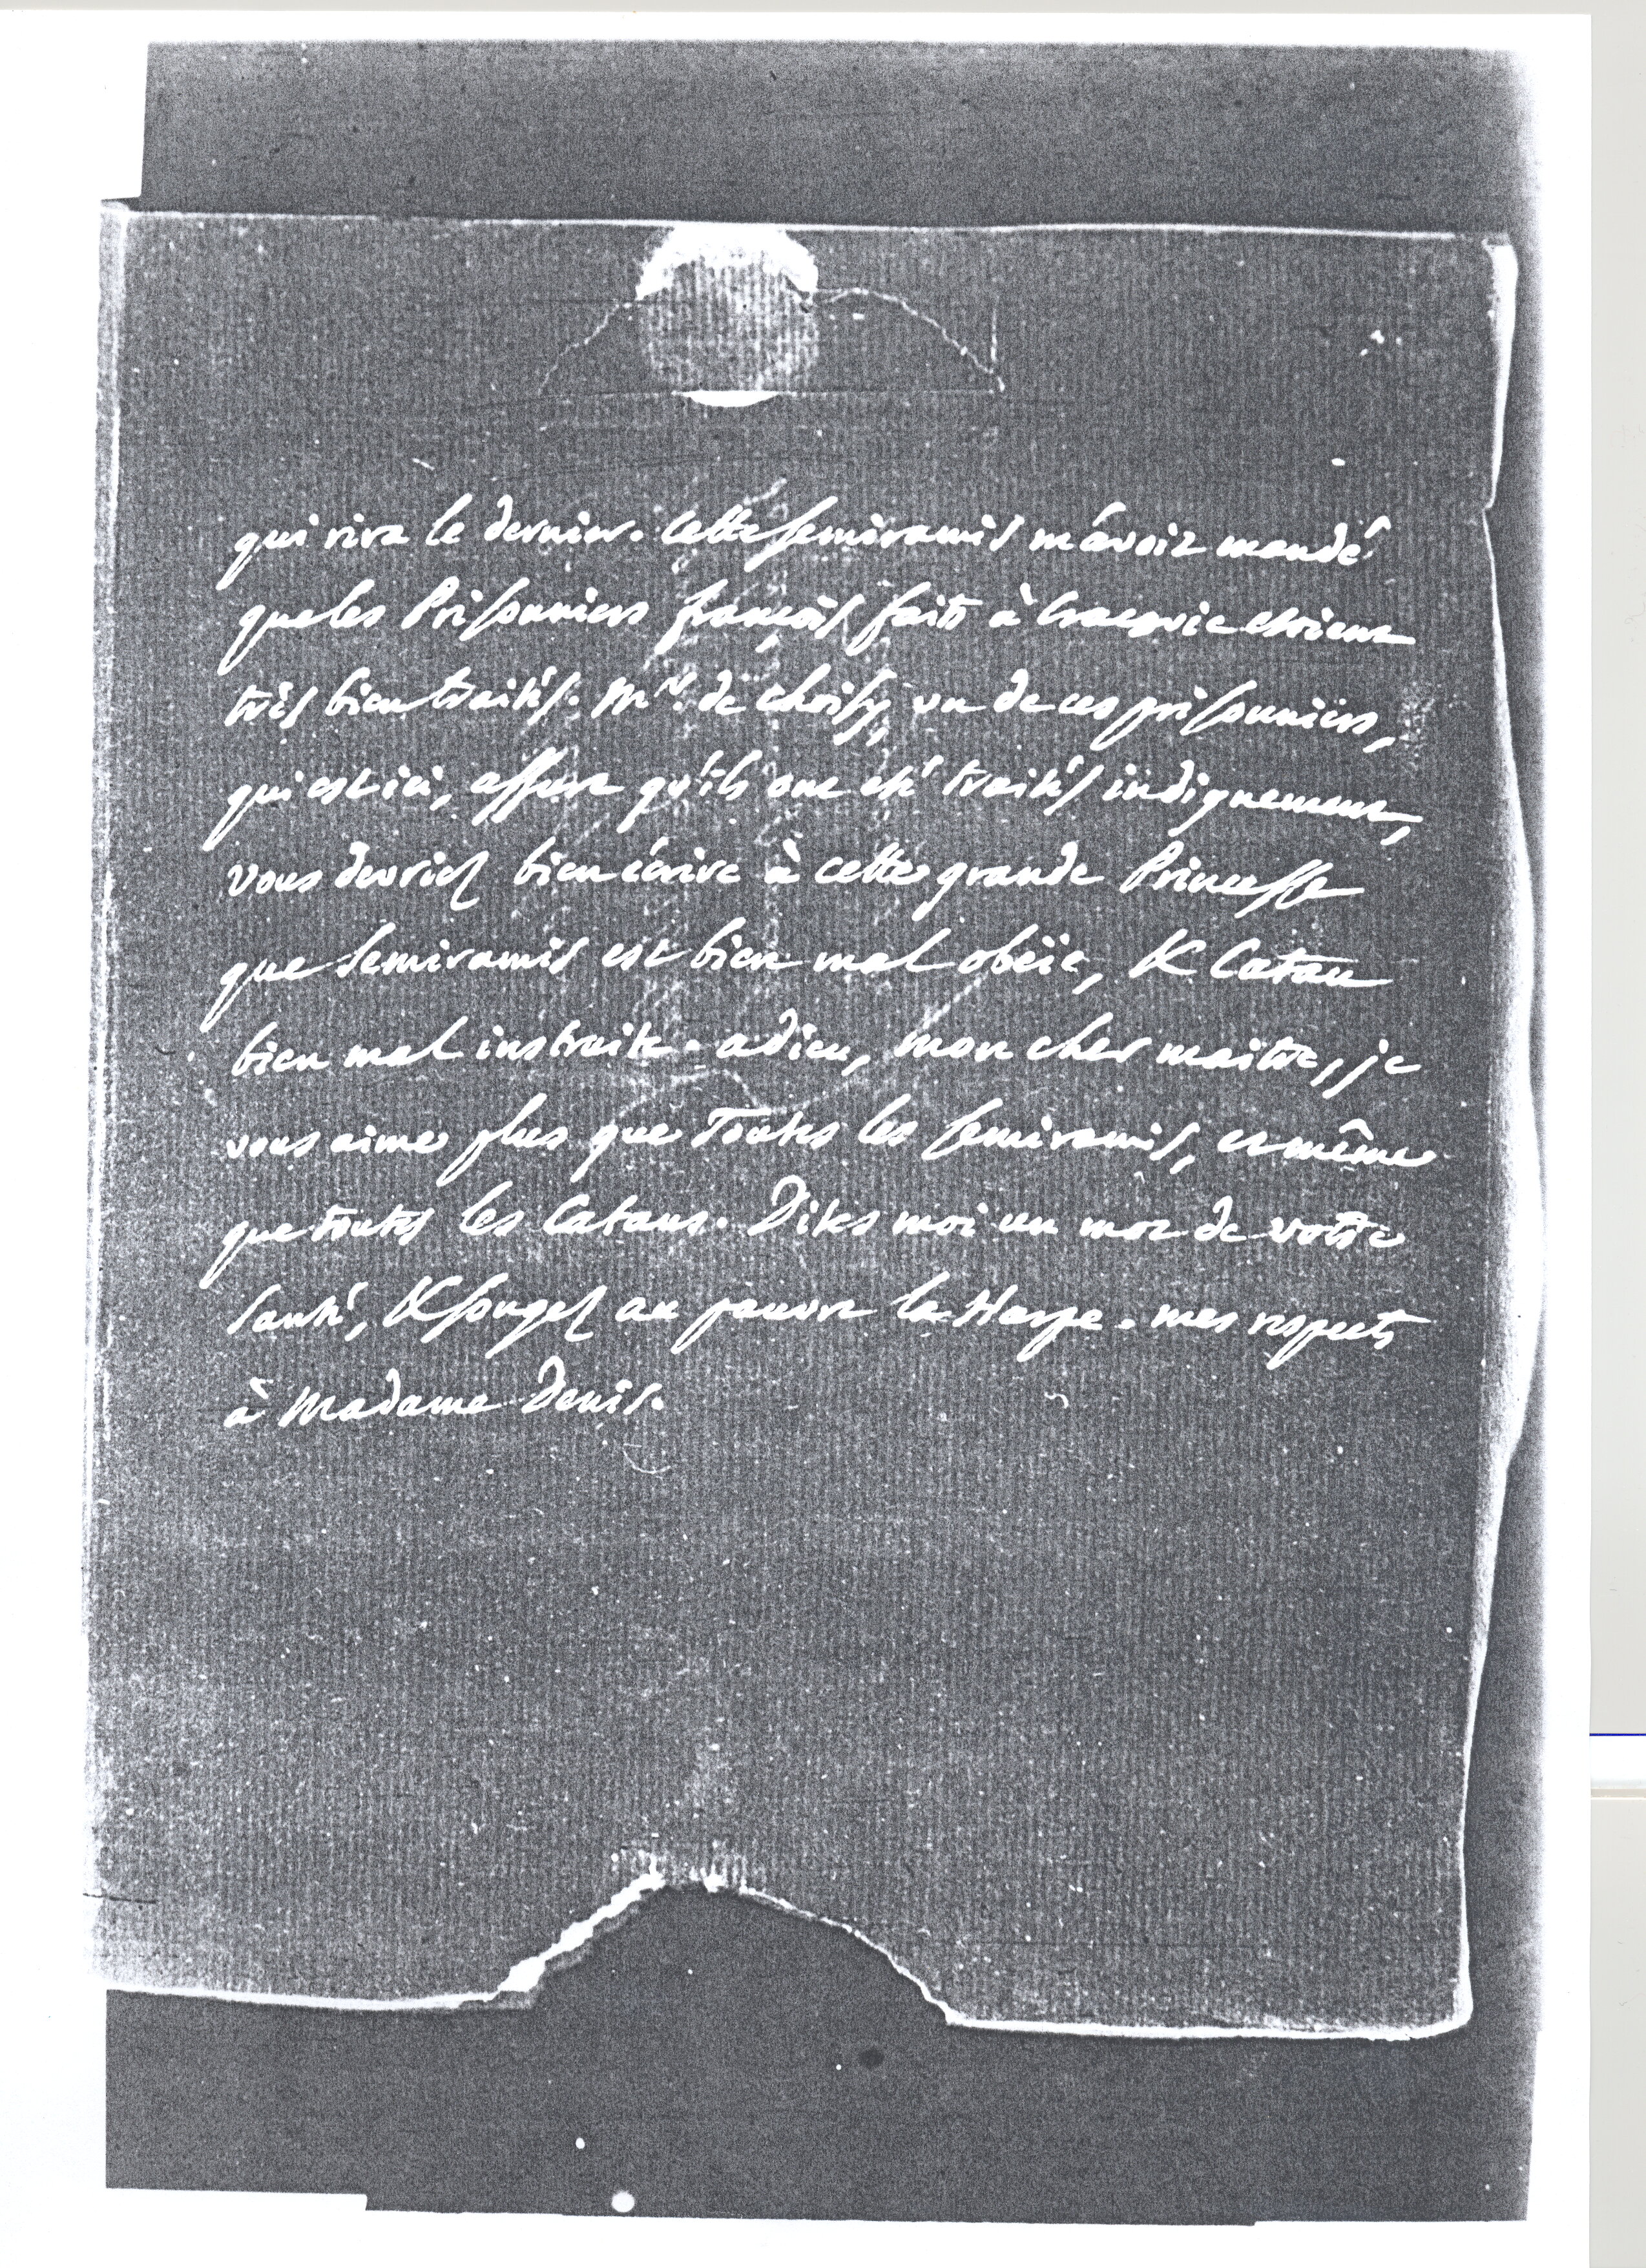 qui rira le dernier. cette semiramis m'avoit mandé
que les Prisonniers françois faits à Cracovie etoient
très bien traités. Mr. de choisy, un de ces prisonniers,
qui est ici, assure qu'ils ont eté traités indignement,
vous devriez bien écrire à cette grande Princesse
que Semiramis est bien mal obéie, & Catau
bien mal instruite. adieu, mon cher maitre, je
vous aime plus que toutes les Semiramis, et même
que toutes les Cataus. Dites moi un mot de votre
santé, & songez au pauvre la Harpe. mes respects
à Madame Denis.